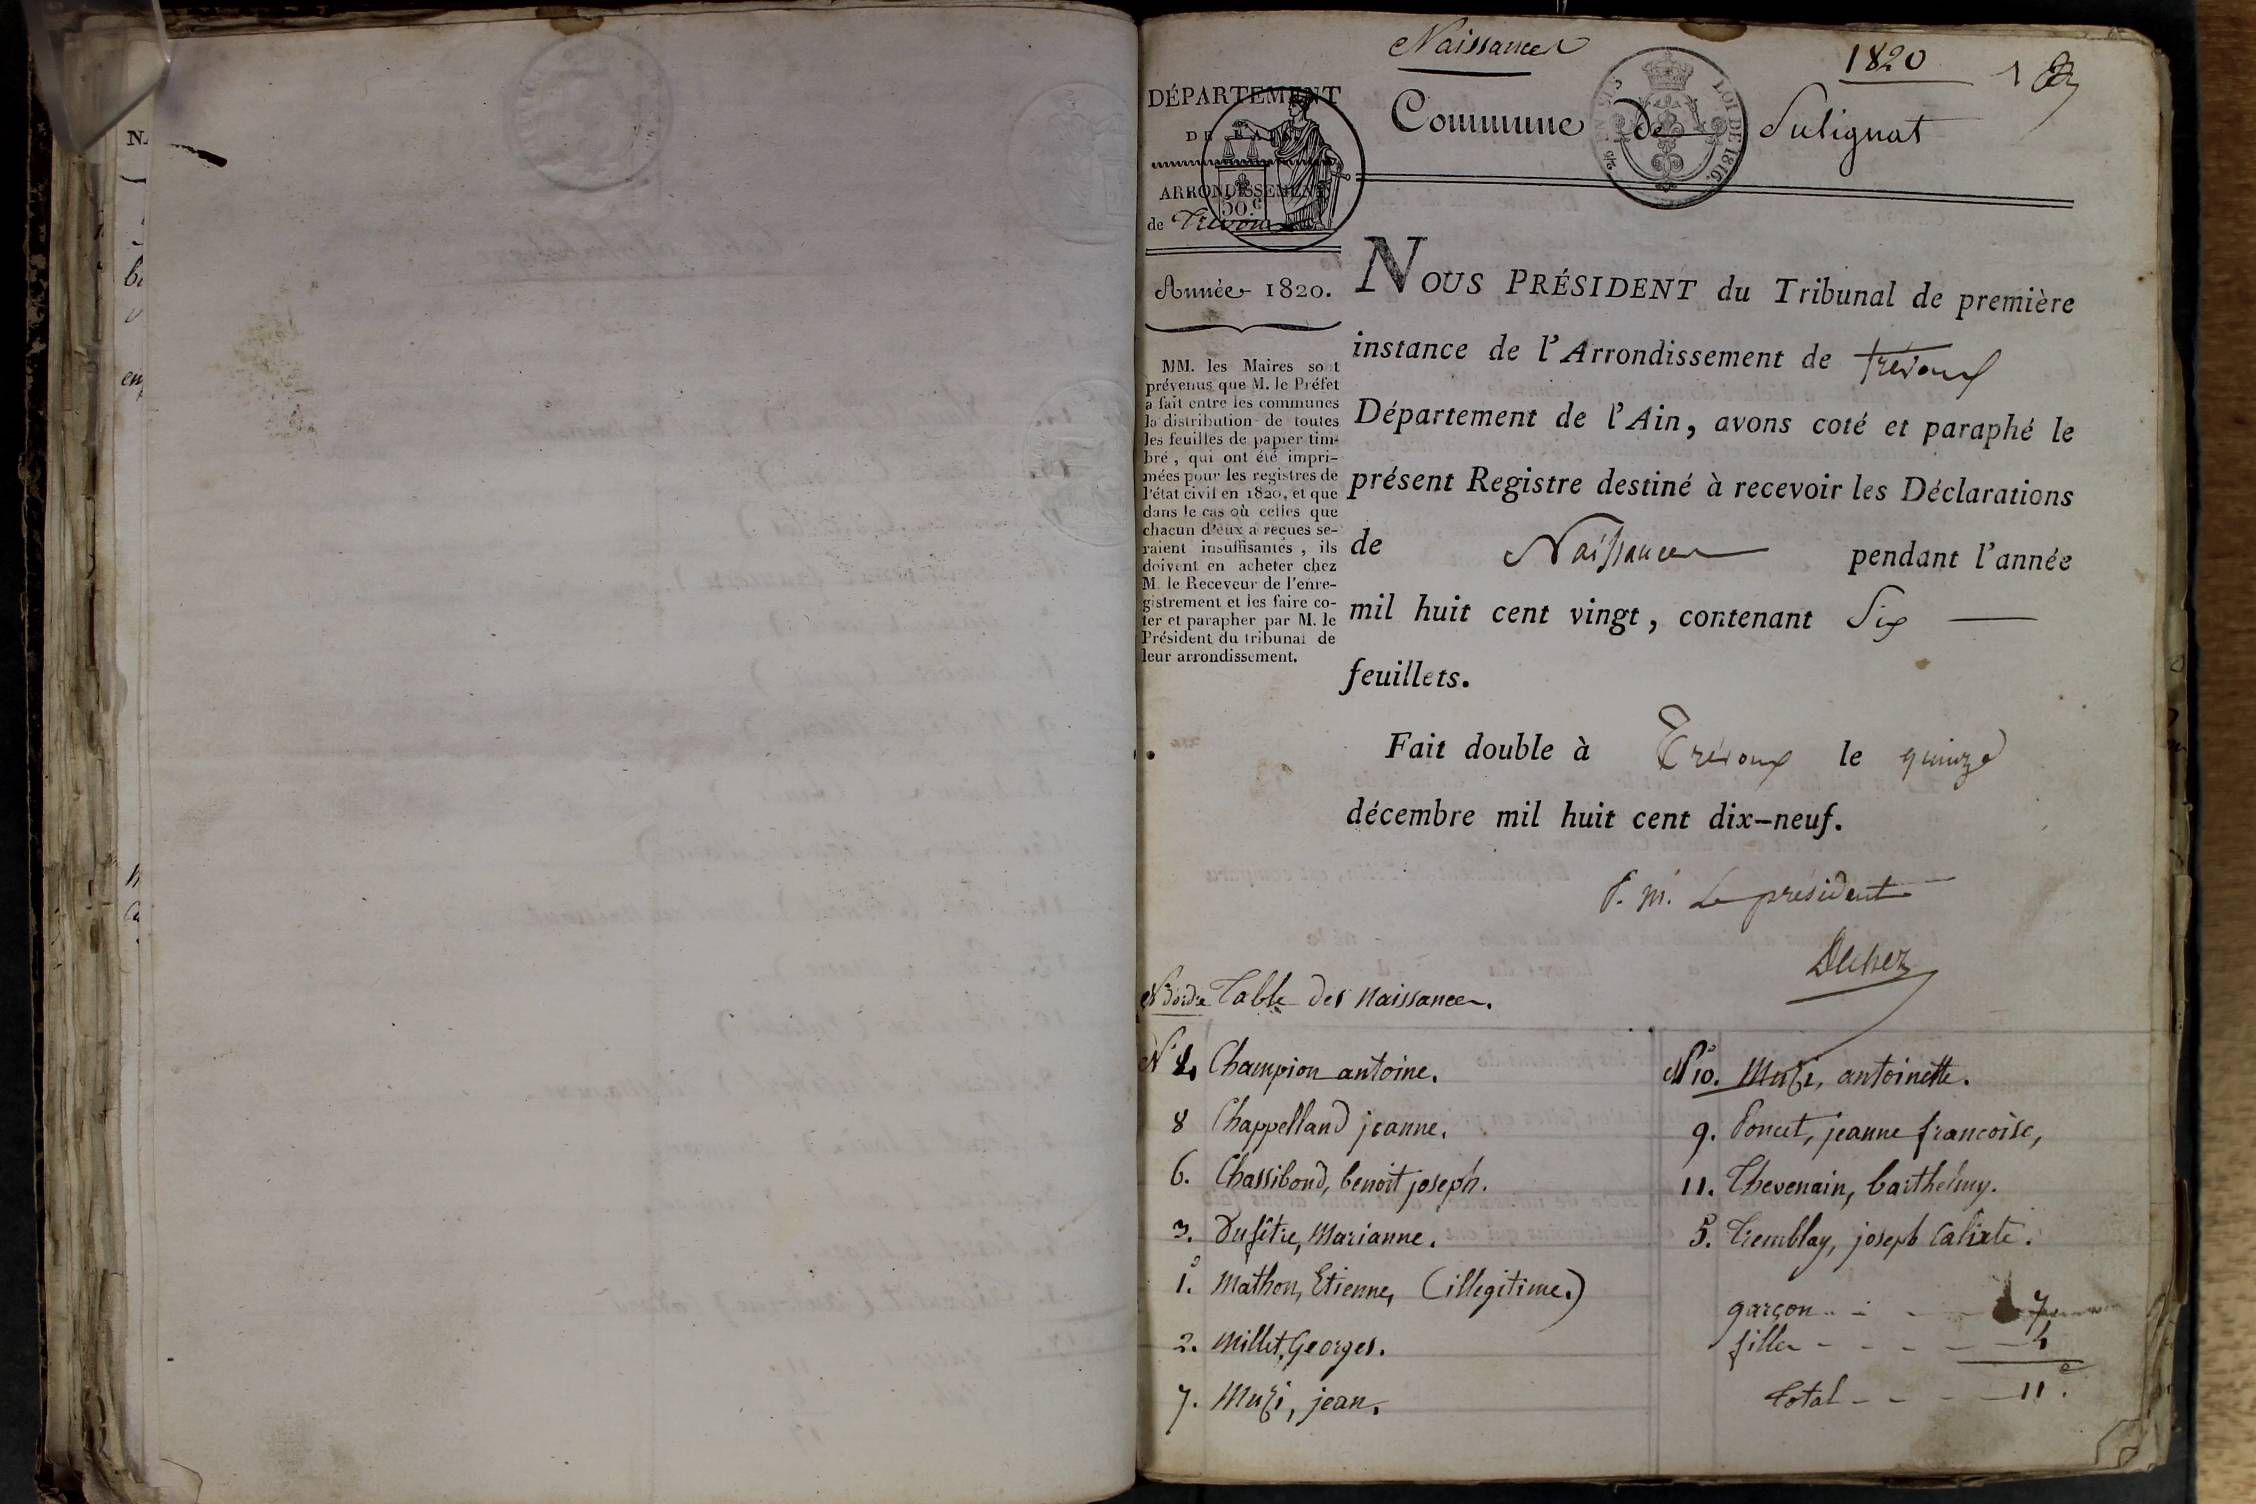 Naissances
1820
1
DÉPARTEMENT
DE L'AIN
ARRONDISSEMENT
de Trévoux
50 c
LOI DE 1816.
Commune de Sulignat
Année 1820.
MM. les Maires sont
prévenus que M. le Préfet
a fait entre les communes
la distribution de toutes
les feuilles de papier tim-
bré, qui ont été impri-
mées pour les registres de
l'état civil en 1820, et que
dans le cas où celles que
chacun d'eux a reçues se-
raient insuffisantes, ils
doivent en acheter chez
M. le Receveur de l'enre-
gistrement et les faire co-
ter et parapher par M. le
Président du tribunal de
leur arrondissement.
NOUS PRÉSIDENT du Tribunal de première
instance de l'Arrondissement de trévoux
Département de l'Ain, avons coté et paraphé le
présent Registre destiné à recevoir les Déclarations
de Naissances pendant l'année
mil huit cent vingt, contenant Six
feuillets.
Fait double à Trévoux le quinze
décembre mil huit cent dix-neuf.
Le président
Nº d'ordre Table des Naissances.
Champion antoine.
8 Chappelland jeanne.
6. Chassibond, benoit joseph.
3. Dufêtre, Marianne.
1. Mathon, Etienne, (illegitime.)
2. Millet, Georges.
7. Muzi, jean.
Nº 10. Muzi, antoinette.
9. Poncet, jeanne francoise,
11. Thevenain, barthelmy.
5. Tremblay, joseph Calixte.
garçon 7
filles 4
total 11.